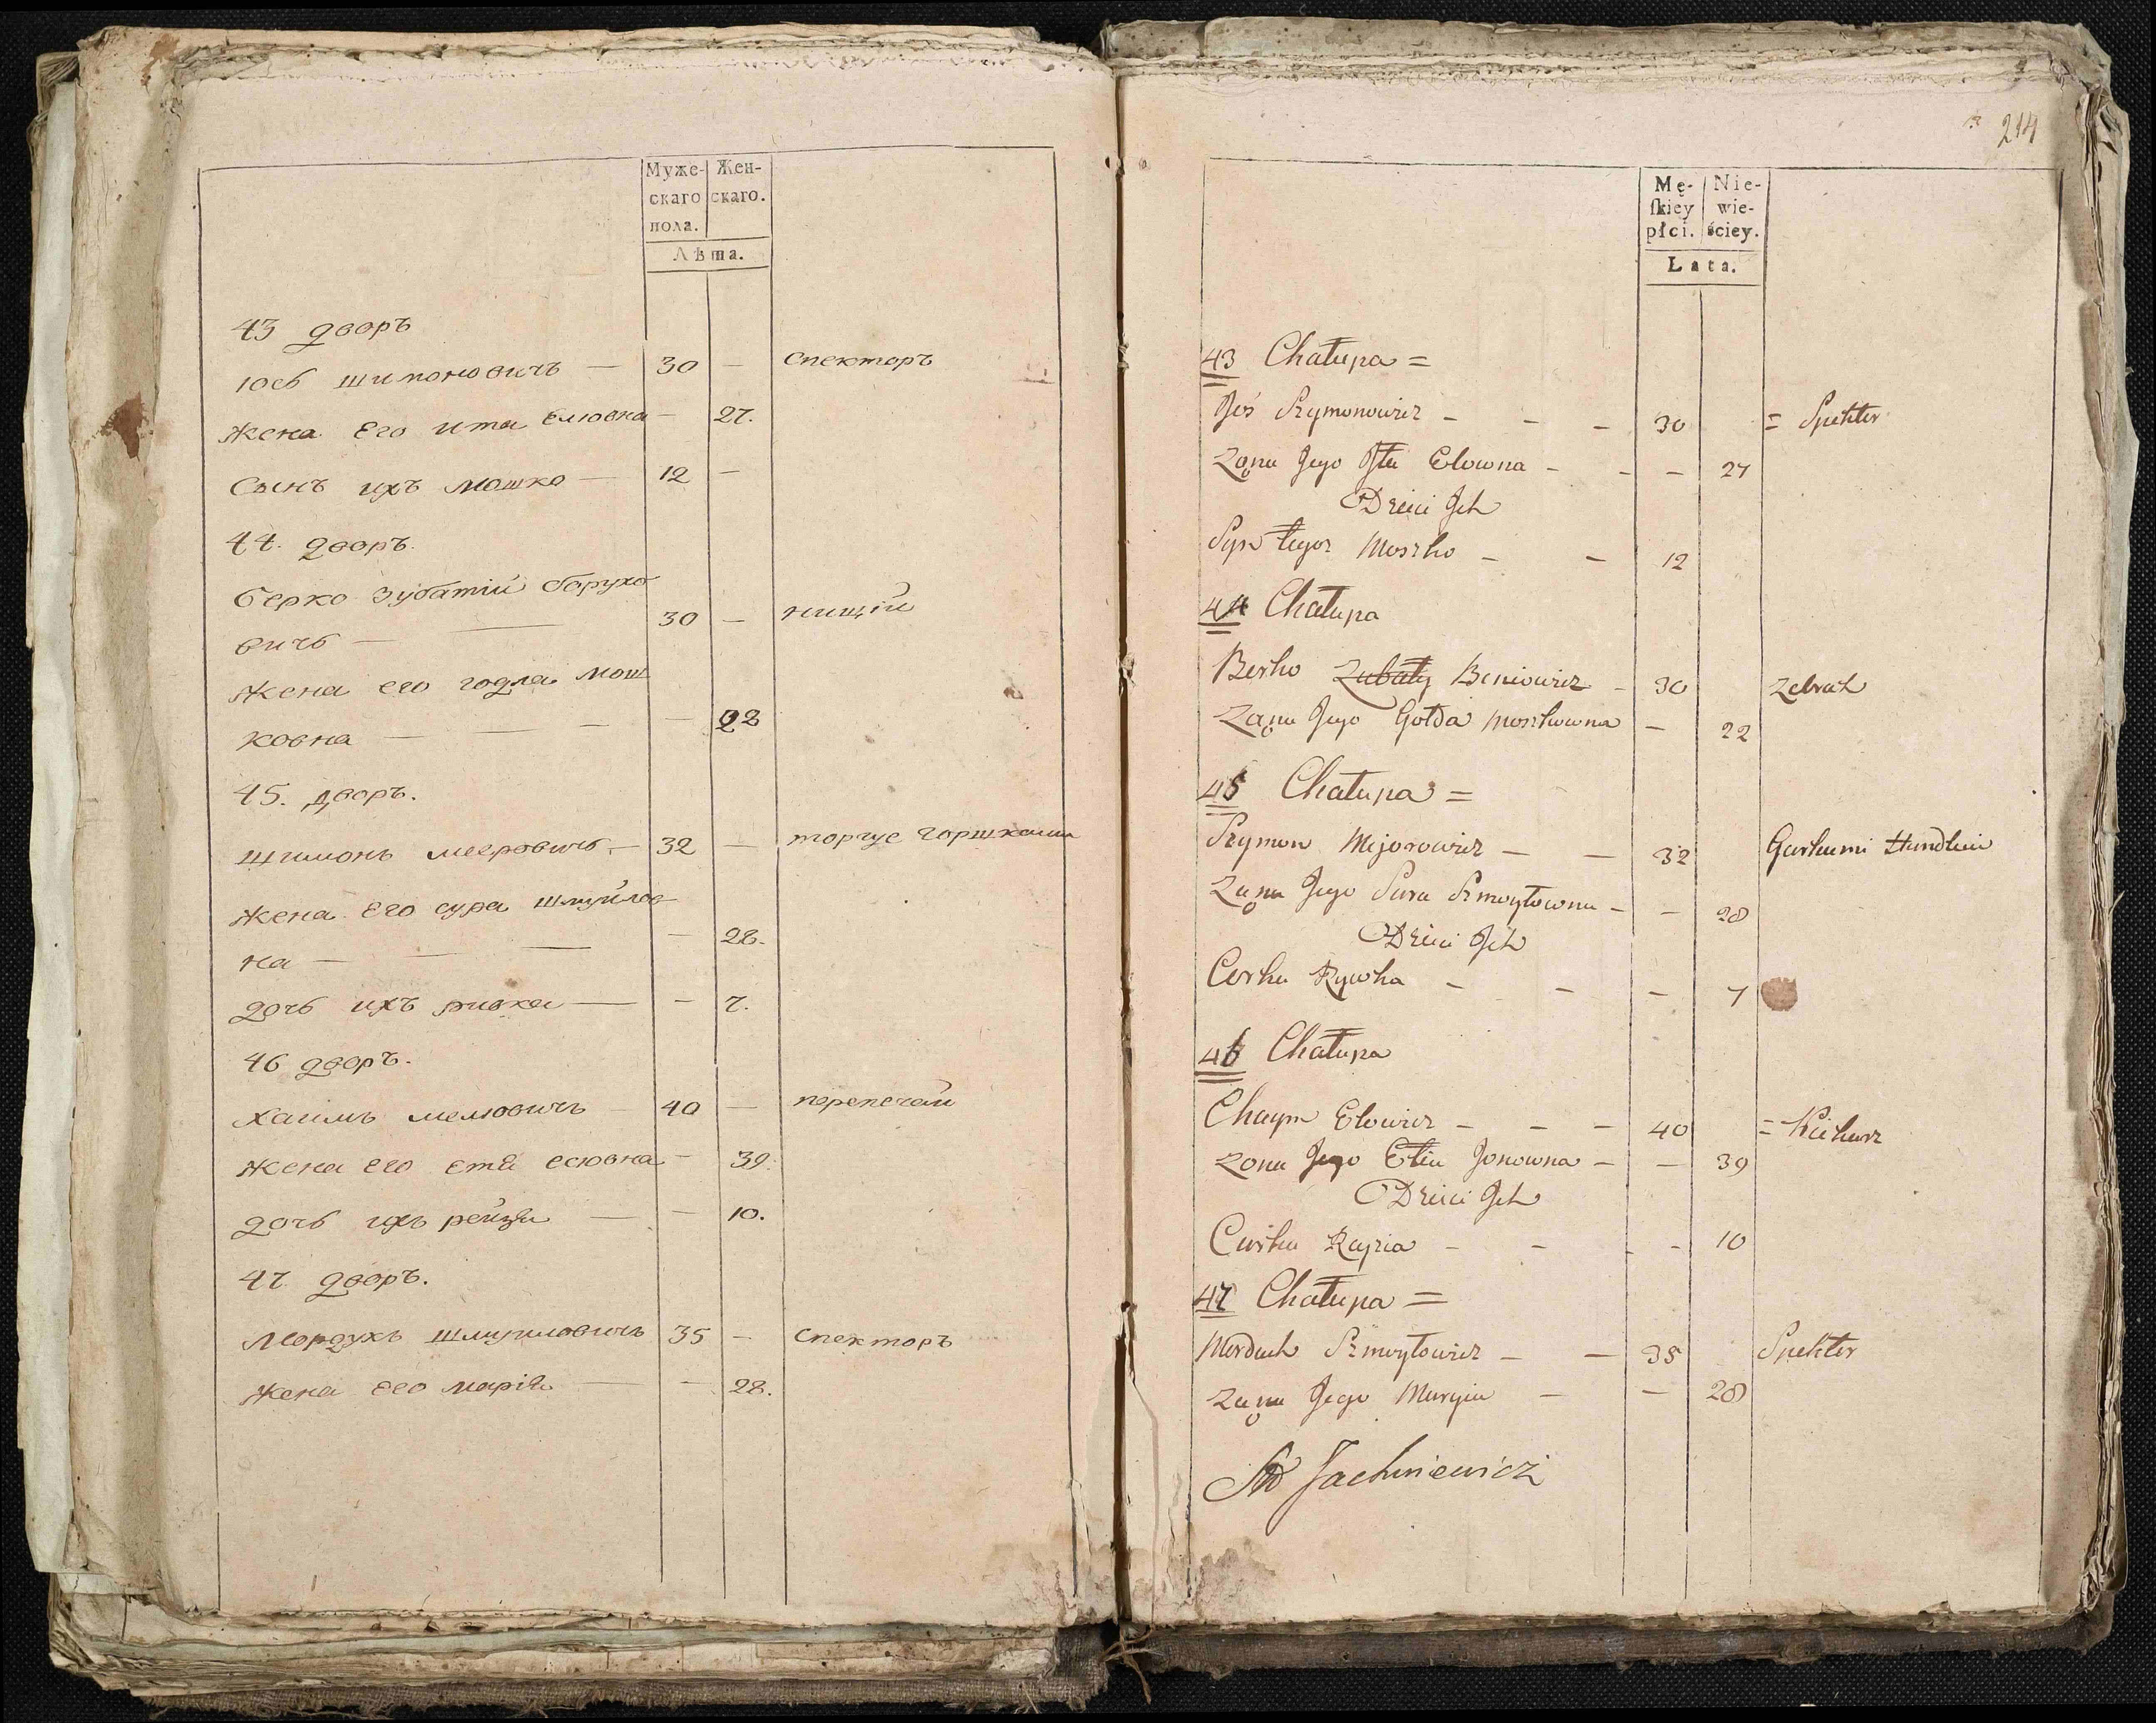 Муже-
скаго
пола.
Жен-
скаго.
Лѣта.
43 дворъ
Юсь шимоновичъ — 30 — спекторъ
жена его ита елювна — 27.
Сынъ ихъ мошко — 12 —
44. дворъ.
Берко зубатїй борухо
вичь — 30 — нищїй
жена его годла мош
ковна — — — — 22
45. дворъ.
шимонь мееровичь — 32 — торгуе горшками
жена его сура шмуйлов
на — — — — 28.
дочь ихъ ривка — — 7.
46 дворъ.
хаимъ мелювичъ — 40 — перепечай
жена его етя есювна — 39.
дочь ихъ рейзя — — 10.
47 дворъ.
Мордухъ шмуиловичъ 35 — спекторъ
жена его марїя — — 28.
214
Mę-
ſkiey
płci.
Nie-
wie-
ściey.
Lata.
43 Chałupa =
Joś Szymonowicz — — — 30 = Spekter
Zona Jego Jta Elowna — — — 27
Dzieci Jch
Syn Moszko — — 12
44 Chałupa
Berko Zubaty Beniowicz — 30 Zebrak
Zona Jego Gołda Moszkowna — 22
45 Chałupa =
Szymon Mejorowicz — — 32 Garkami Handluie
Zona Jego Sura Szmoyłowna — — 28
Dzieci Jch
Corka Rywka — — — 7
46 Chałupa
Chaym Elowicz — — — 40 = Piekarz
Zona Jego Etia Jonowna — — 39
Dzieci Jch
Corka Rayzia — — — — 10
47 Chałupa =
Morduch Szmoyłowicz — — 35 Spekter
Zona Jego Maryia — — 28
Jachniewicz